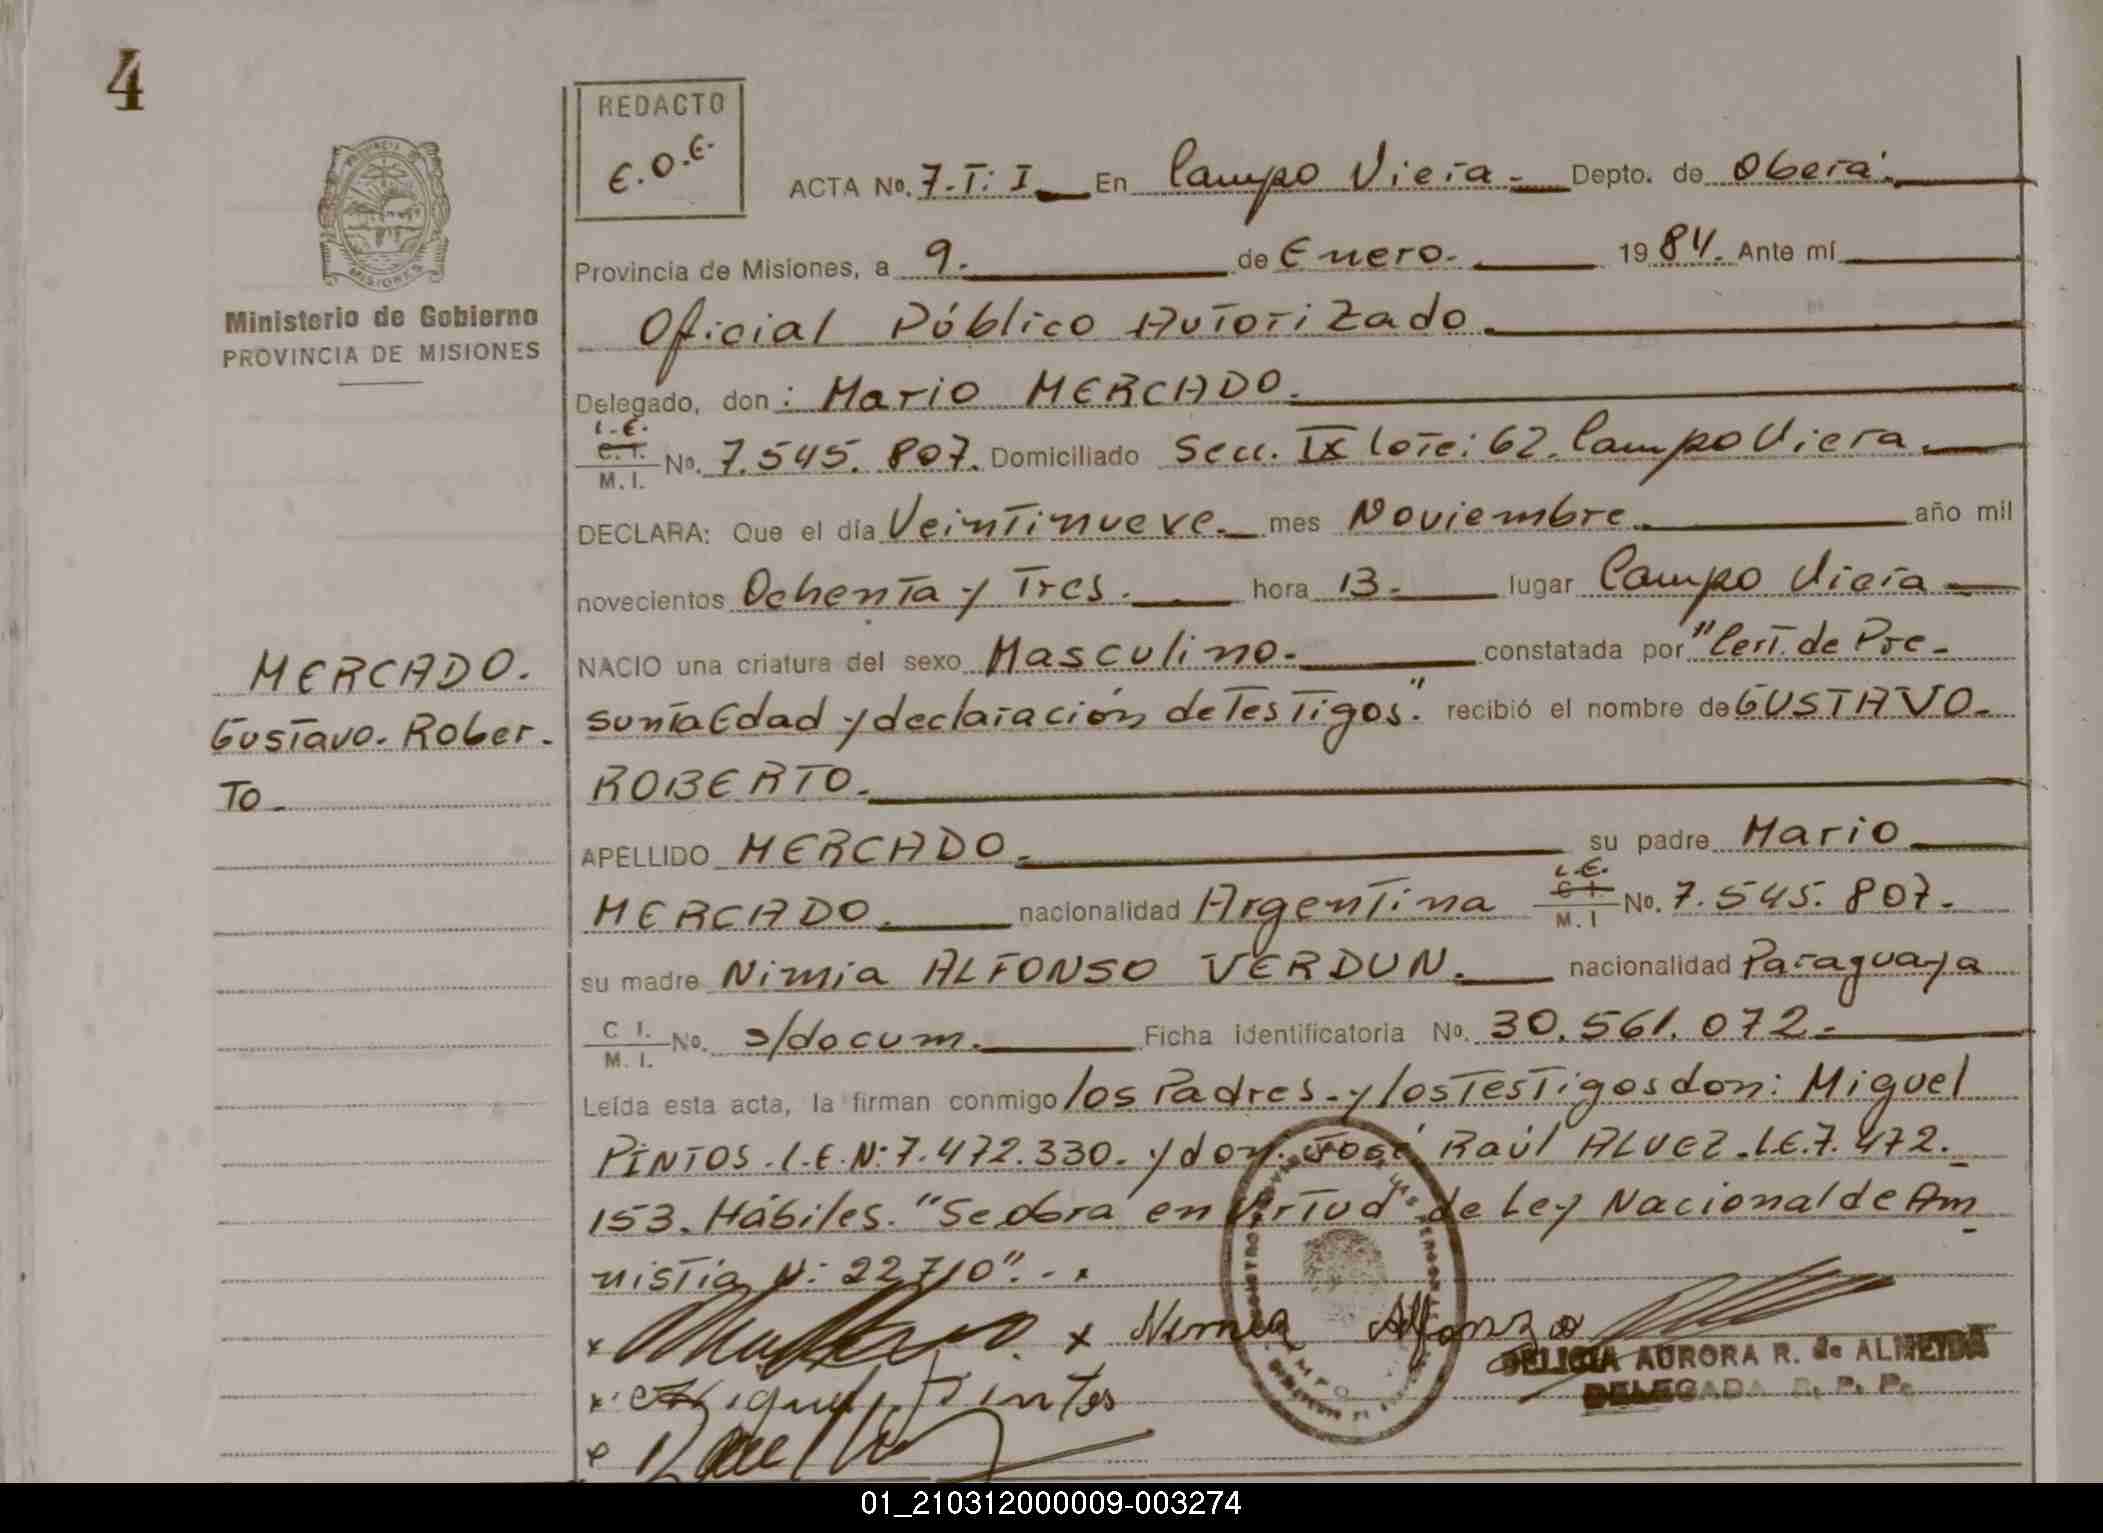 4
REDACTO
E.O.E.
ACTA No. 7.T:I. En Campo Viera. Depto. de Oberá.
Provincia de Misiones, a 9. de Enero. 1984. Ante mí
Oficial Público Autorizado.
Delegado, don: Mario MERCADO.
L.E.
C.I.
M.I. No. 7.545.807. Domiciliado Secc. IX lote: 62. Campo Viera.
DECLARA: Que el día Veintinueve. mes Noviembre. año mil
novecientos Ochenta y Tres. hora 13. lugar Campo Viera
NACIO una criatura del sexo Masculino. constatada por "Cert. de Pre-
sunta Edad y declaración de Testigos". recibió el nombre de GUSTAVO.
ROBERTO.
APELLIDO MERCADO. su padre Mario
L.E.
MERCADO. nacionalidad Argentina C I M. I No. 7.545.807.
su madre Nimia ALFONSO VERDUN. nacionalidad Paraguaya
C I. M. I. No. s/docum. Ficha identificatoria No. 30.561.072.
Leída esta acta, la firman conmigo los Padres. y los Testigos don: Miguel
PINTOS. L.E.N: 7.472.330. y don. José Raúl ALVEZ. L.E. 7.472.
153. Hábiles. "Se obra en Virtud de Ley Nacional de Am
nistia N: 22.710".-
x x Nimia Alfonzo
x Miguel Pintos
DELICIA AURORA R. de ALMEIDA
DELEGADA R. P. P.
PROVINCIA DE MISIONES
Ministerio de Gobierno
PROVINCIA DE MISIONES
MERCADO.
Gustavo. Rober.
To.
01_210312000009-003274